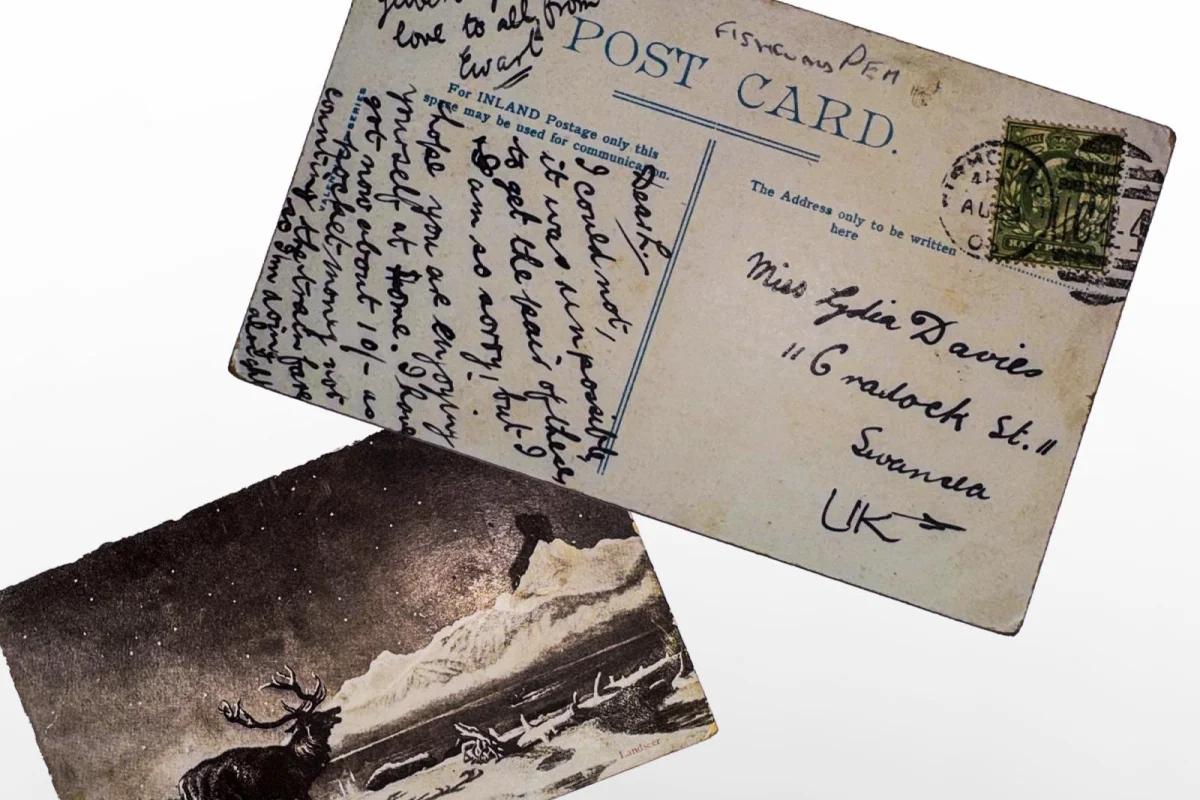 FISHGUARD PEM
POST CARD.
For INLAND Postage only this
space may be used for communication.
The Address only to be written
here
AU
HALFPENNY
Miss Lydia Davies
"Cradock St."
Swansea
UK
Dear L.
I could not,
it was impossible
to get the pair of these,
I am so sorry, but I
hope you are enjoying
yourself at Home. I have
got now about 10/- as
pocket-money not
counting the train fare
so I'm doing
alright
love to all from
Ewart
SERIES
Landseer